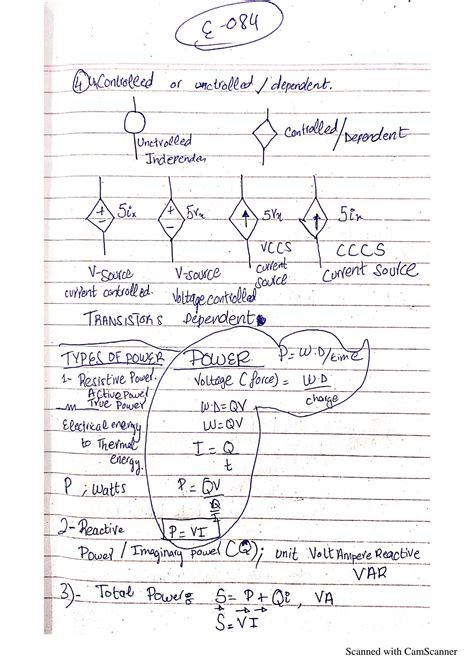 E-084
4) Uncontrolled or unctrolled / dependent.
Unctrolled
Independen
Controlled / Dependent
+ - 5ix
+ - 5vx
5vx
5ix
V-Source
current controlled.
V-source
Voltage controlled
VCCS
current
source
CCCS
Current Source
TRANSISTORS Dependent
TYPES OF POWER
1- Resistive Power.
Active Power
True Power
Electrical energy
to Thermal
energy.
P ; Watts
POWER
P = W.D/time
Voltage (force) = W.D
charge
W.D = QV
W = QV
I = Q
t
P = QV
Q
I
P = VI
2- Reactive
Power / Imaginary power (Q); unit Volt Ampere Reactive
VAR
3)- Total Power: S = P + Qi, VA
S = VI
Scanned with CamScanner